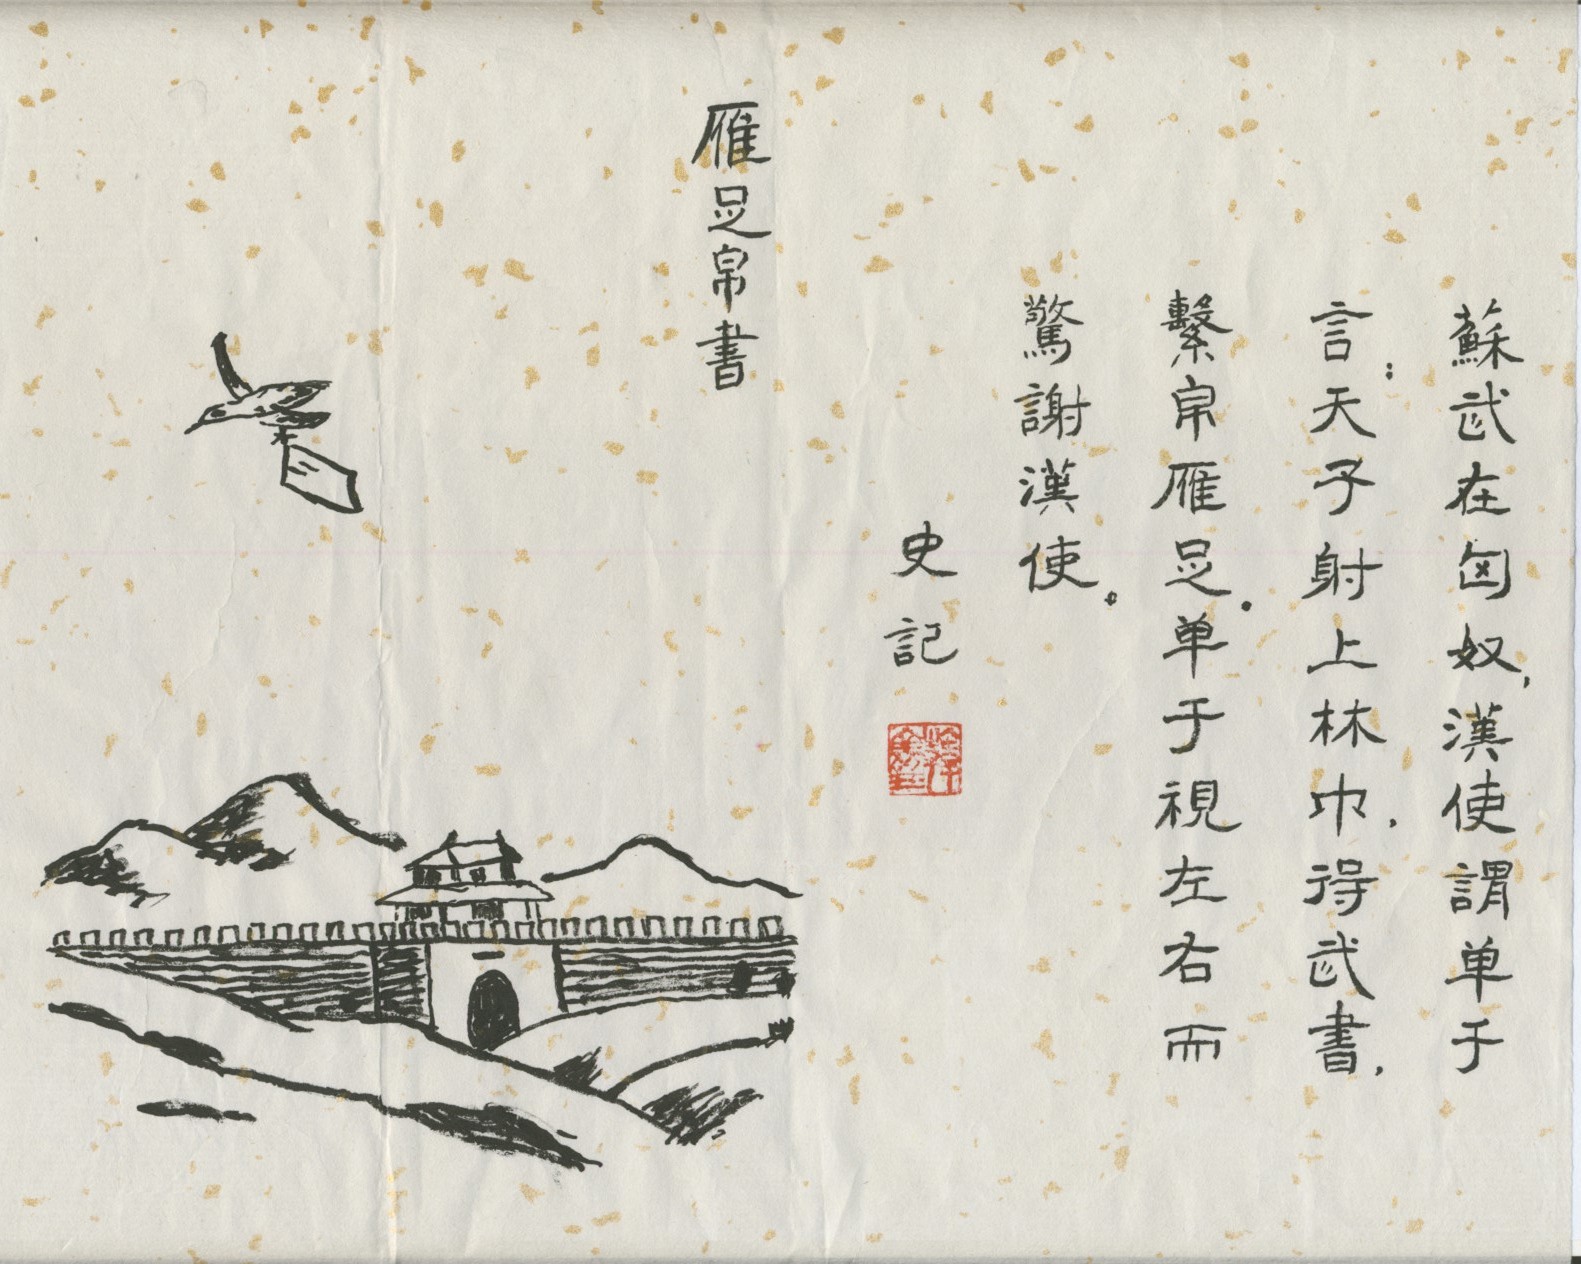 蘇武在匈奴,漢使謂单于
言:天子射上林巾,得武書,
繫帛雁足.单于視左右而
驚謝漢使。
史記
雁足帛書